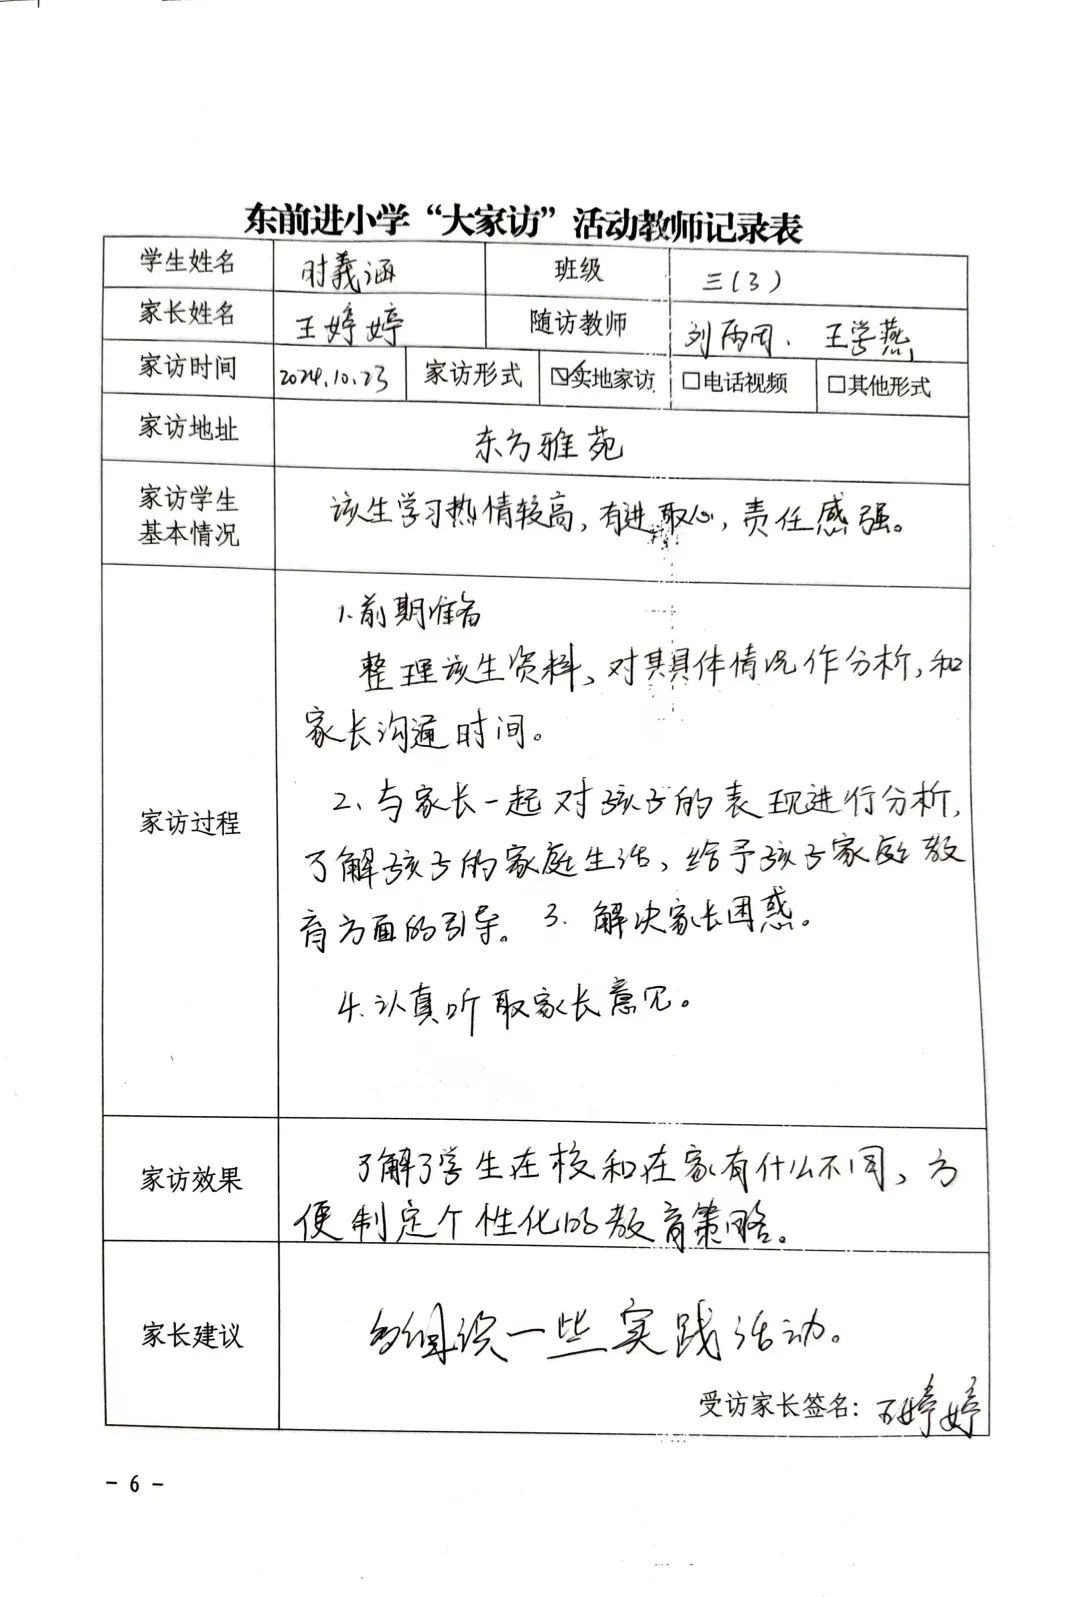 东前进小学“大家访”活动教师记录表
学生姓名 时義涵 班级 三(3)
家长姓名 王婷婷 随访教师 刘雨 王学燕
家访时间 2024.10.23 家访形式 ☑实地家访 □电话视频 □其他形式
家访地址 东方雅苑
家访学生
基本情况
该生学习热情较高，有进取心，责任感强。
家访过程
1.前期准备
整理该生资料、对其具体情况作分析，和
家长沟通时间。
2、与家长一起对孩子的表现进行分析,
了解孩子的家庭生活，给予孩子家庭教
育方面的引导。3. 解决家长困惑。
4.认真听取家长意见。
家访效果
了解了学生在校和在家有什么不同、方
便制定个性化的教育策略。
家长建议
多组织一些实践活动。
受访家长签名：王婷婷
- 6 -